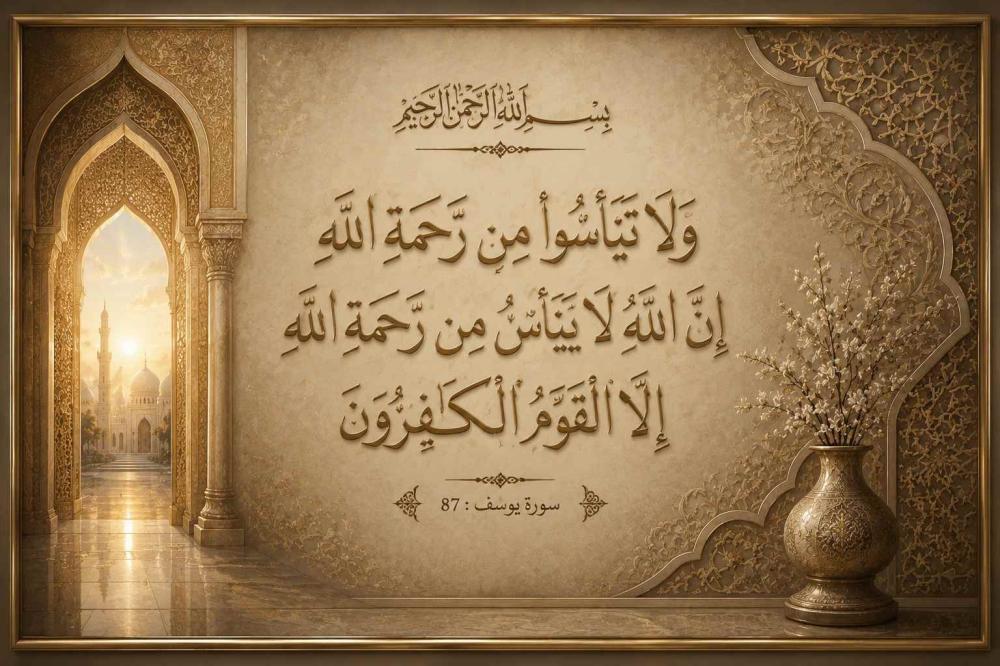 بِسْمِ اللَّهِ الرَّحْمَٰنِ الرَّحِيمِ
وَلَا تَيَأَسُوا مِن رَّحْمَةِ اللَّهِ
إِنَّ اللَّهُ لَا يَيَأَسُ مِن رَّحْمَةِ اللَّهِ
إِلَّا الْقَوَمُ الْكَافِرُونَ
سورة يوسف : 87